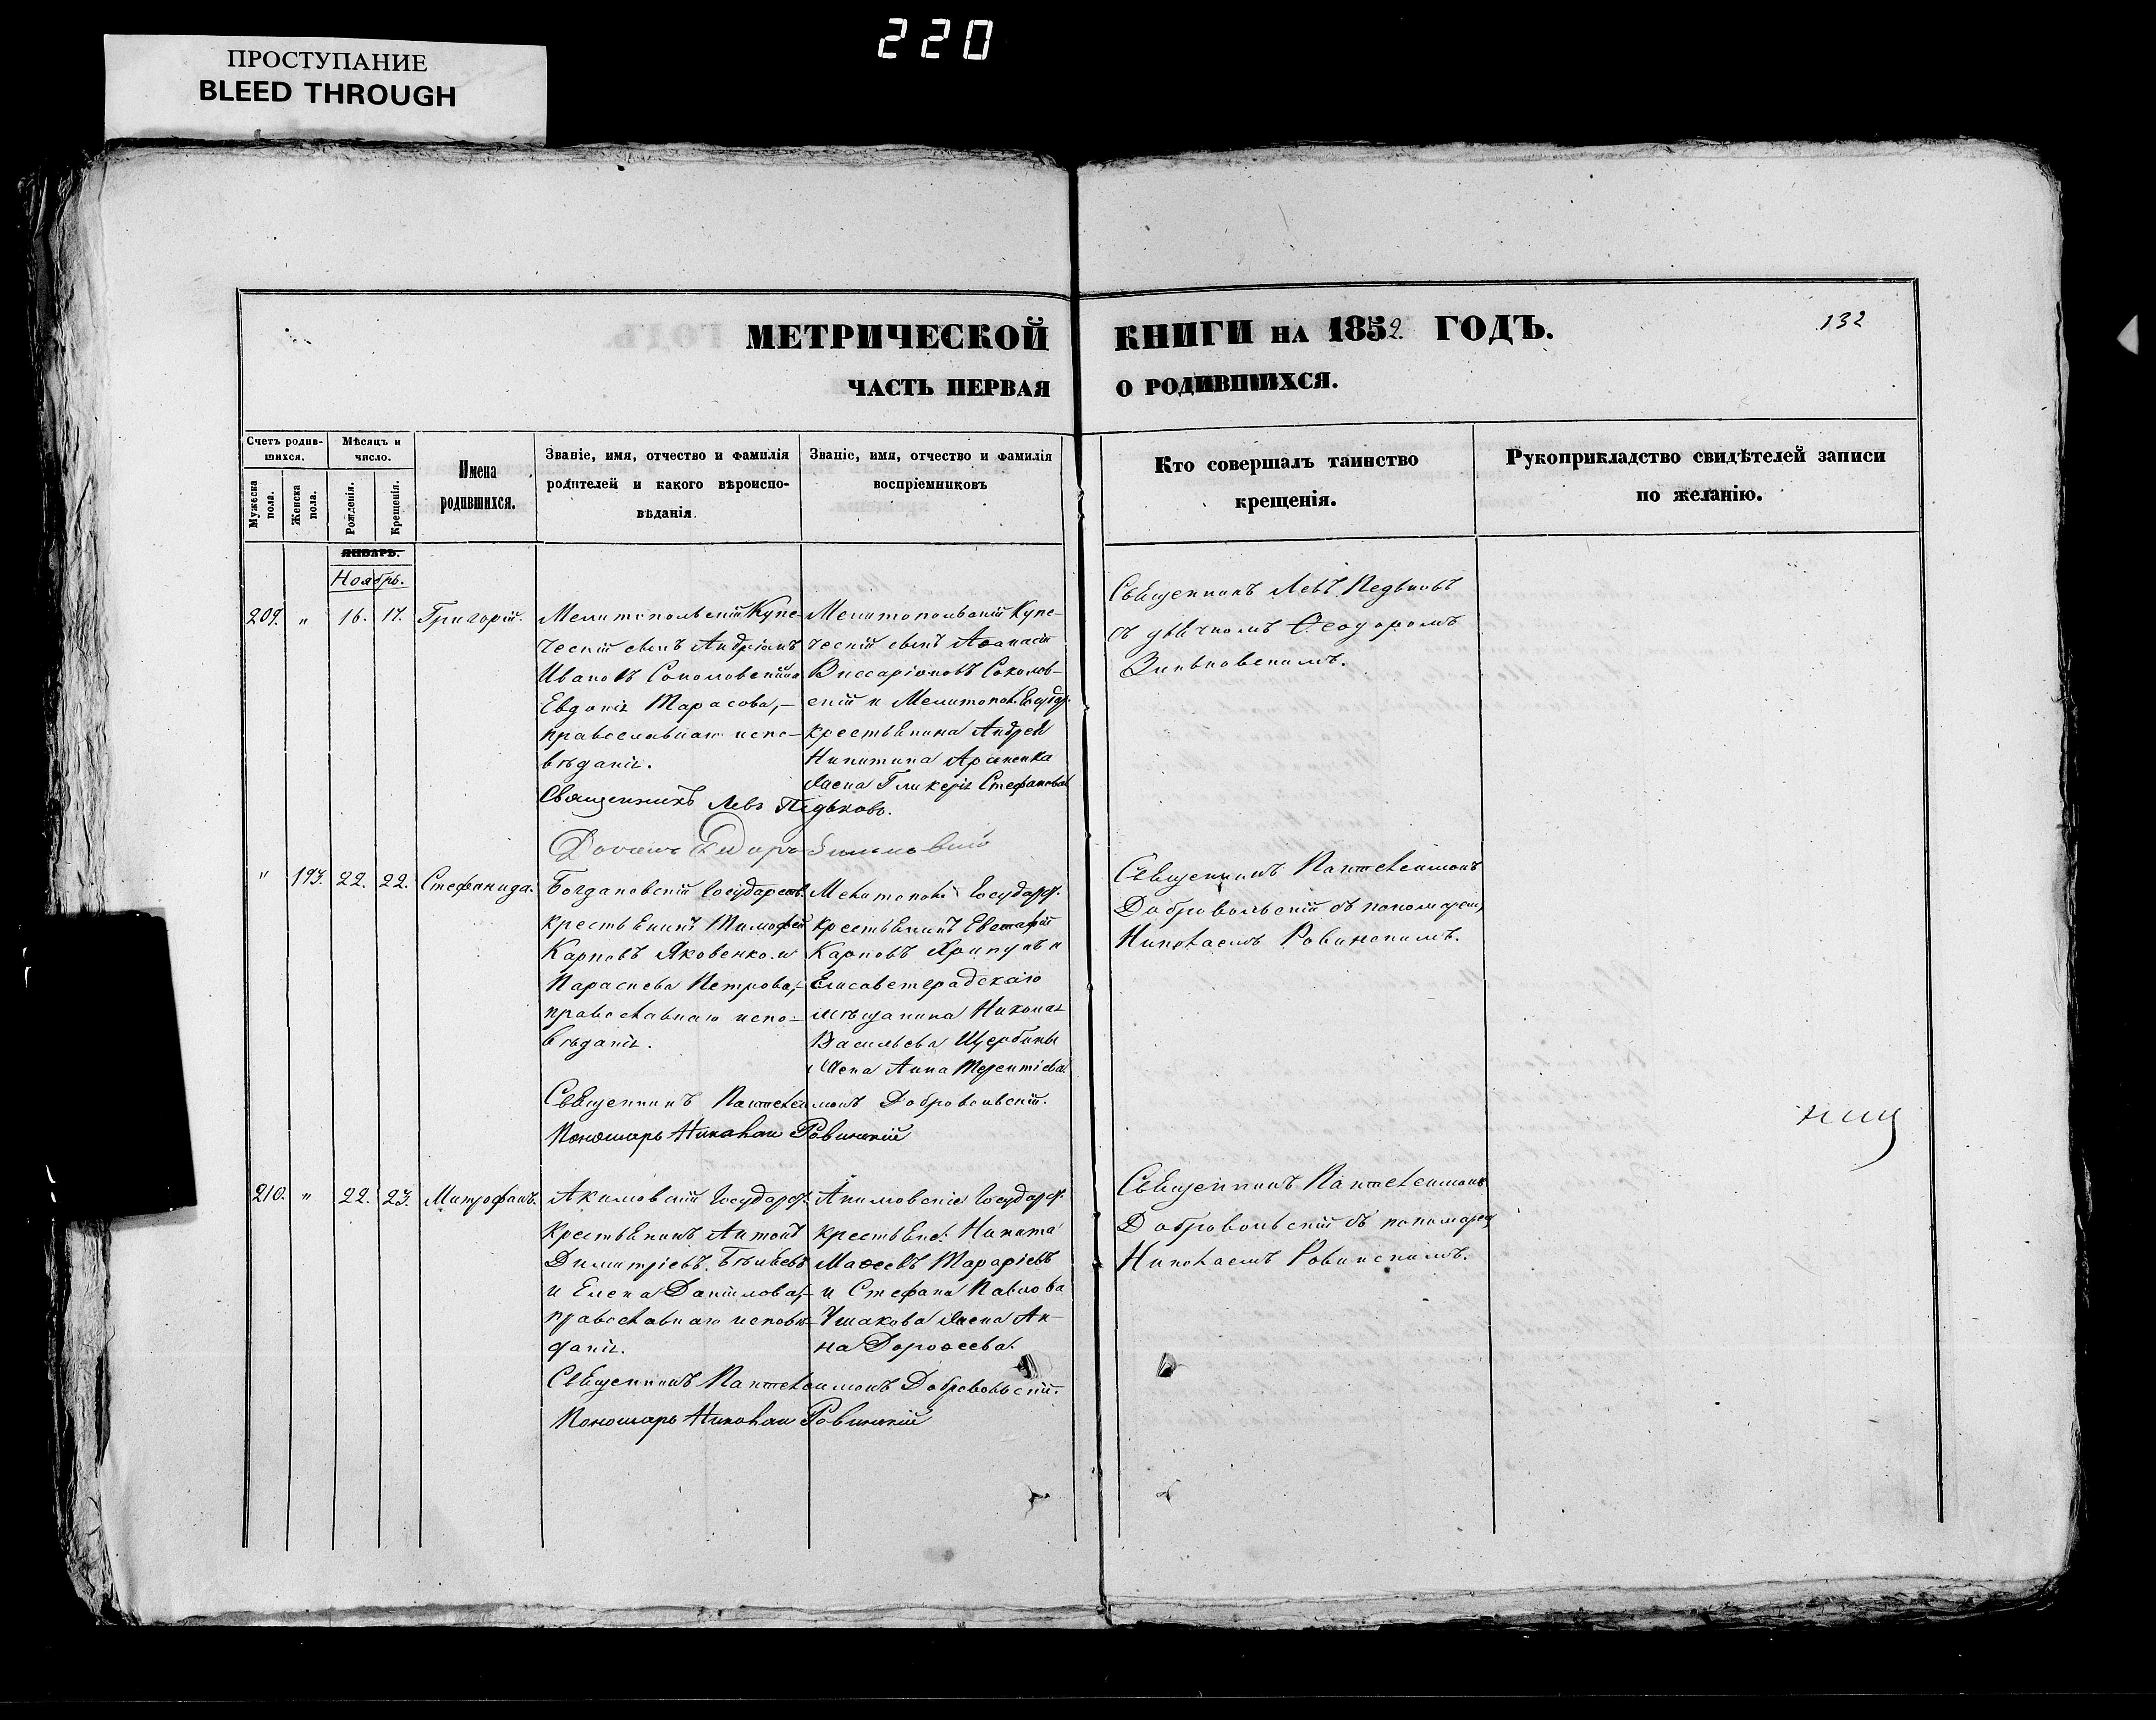 220
ПРОСТУПАНИЕ
BLEED THROUGH
МЕТРИЧЕСКОЙ КНИГИ НА 1852 ГОДЪ.
132
ЧАСТЬ ПЕРВАЯ О РОДИВШИХСЯ.
Счетъ родив-
шихся.
Мужеска пола.
Женска пола.
Мѣсяцъ и
число.
Рожденія.
Крещенія.
Имена
родившихся.
Званіе, имя, отчество и фамилія
родителей и какого вѣроиспо-
вѣданія.
Званіе, имя, отчество и фамилія
воспріемниковъ
Кто совершалъ таинство
крещенія.
Рукоприкладство свидѣтелей записи
по желанію.
ЯНВАРЬ.
Ноябрь.
209. " 16. 17. Григорій.
Мелитопольскій Купе-
ческій сынъ Андріанъ
Ивановъ Соколовскій и
Евдокія Тарасова,—
православнаго испо-
вѣданія.
Мелитопольскій Купе-
ческій сынъ Аѳанасій
Виссаріоновъ Соколов-
скій и Мелитопол. Государ.
крестьянина Андрея
Никитина
жена Гликерія Стефанова
Священникъ Левъ Педьковъ.
Священникъ Левъ Педьковъ
съ дьячкомъ Ѳеодоромъ
" 193. 22. 22. Стефанида.
Богдановскій Государств.
крестьянинъ Тимофей
Карповъ Яковенко и
Параскева Петрова,—
православнаго испо-
вѣданія.
Мелитопол. Государ.
крестьянинъ Евстафій
Карповъ Хрипунъ и
Елисаветградскаго
мѣщанина Николая
Васильева Щербины
жена Анна Терентіева
Священникъ Пантелеимонъ Добровольскій.
Пономарь Николай Ровинскій
Священникъ Пантелеимонъ
Добровольскій съ пономаремъ
Николаемъ Ровинскимъ.
210. " 22. 23. Митрофанъ.
Акимовскій Государ.
крестьянинъ Антонъ
Димитріевъ Бѣляевъ
и Елена Даніилова,—
православнаго исповѣ-
данія.
Акимовскіе Государ.
крестьяне: Никита
Маѳеевъ
и Стефана Павлова
Ушакова жена Ан-
на Дороѳеева.
Священникъ Пантелеимонъ Добровольскій.
Пономарь Николай Ровинскій
Священникъ Пантелеимонъ
Добровольскій съ пономаремъ
Николаемъ Ровинскимъ.